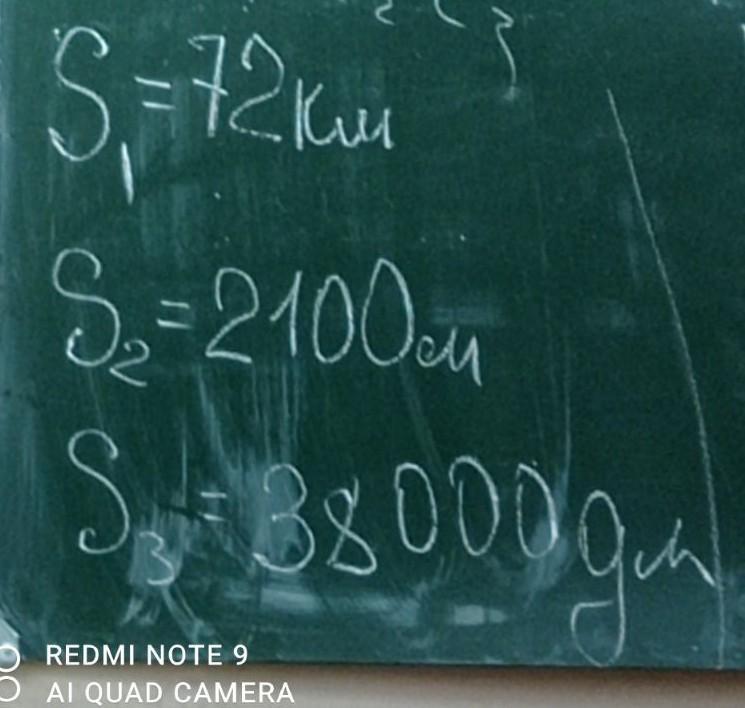 S₁ = 72 км
S₂ = 2100 см
S₃ = 38000 дм
REDMI NOTE 9
AI QUAD CAMERA